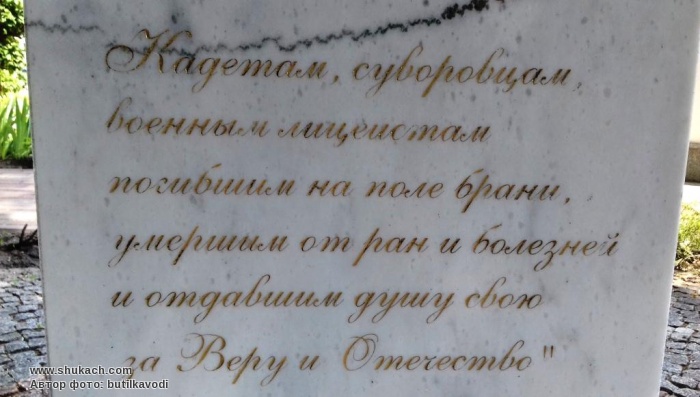 Кадетам, суворовцам,
военным лицеистам
погибшим на поле брани,
умершим от ран и болезней
и отдавшим душу свою
за Веру и Отечество"
www.shukach.com
Автор фото: butilkavodi